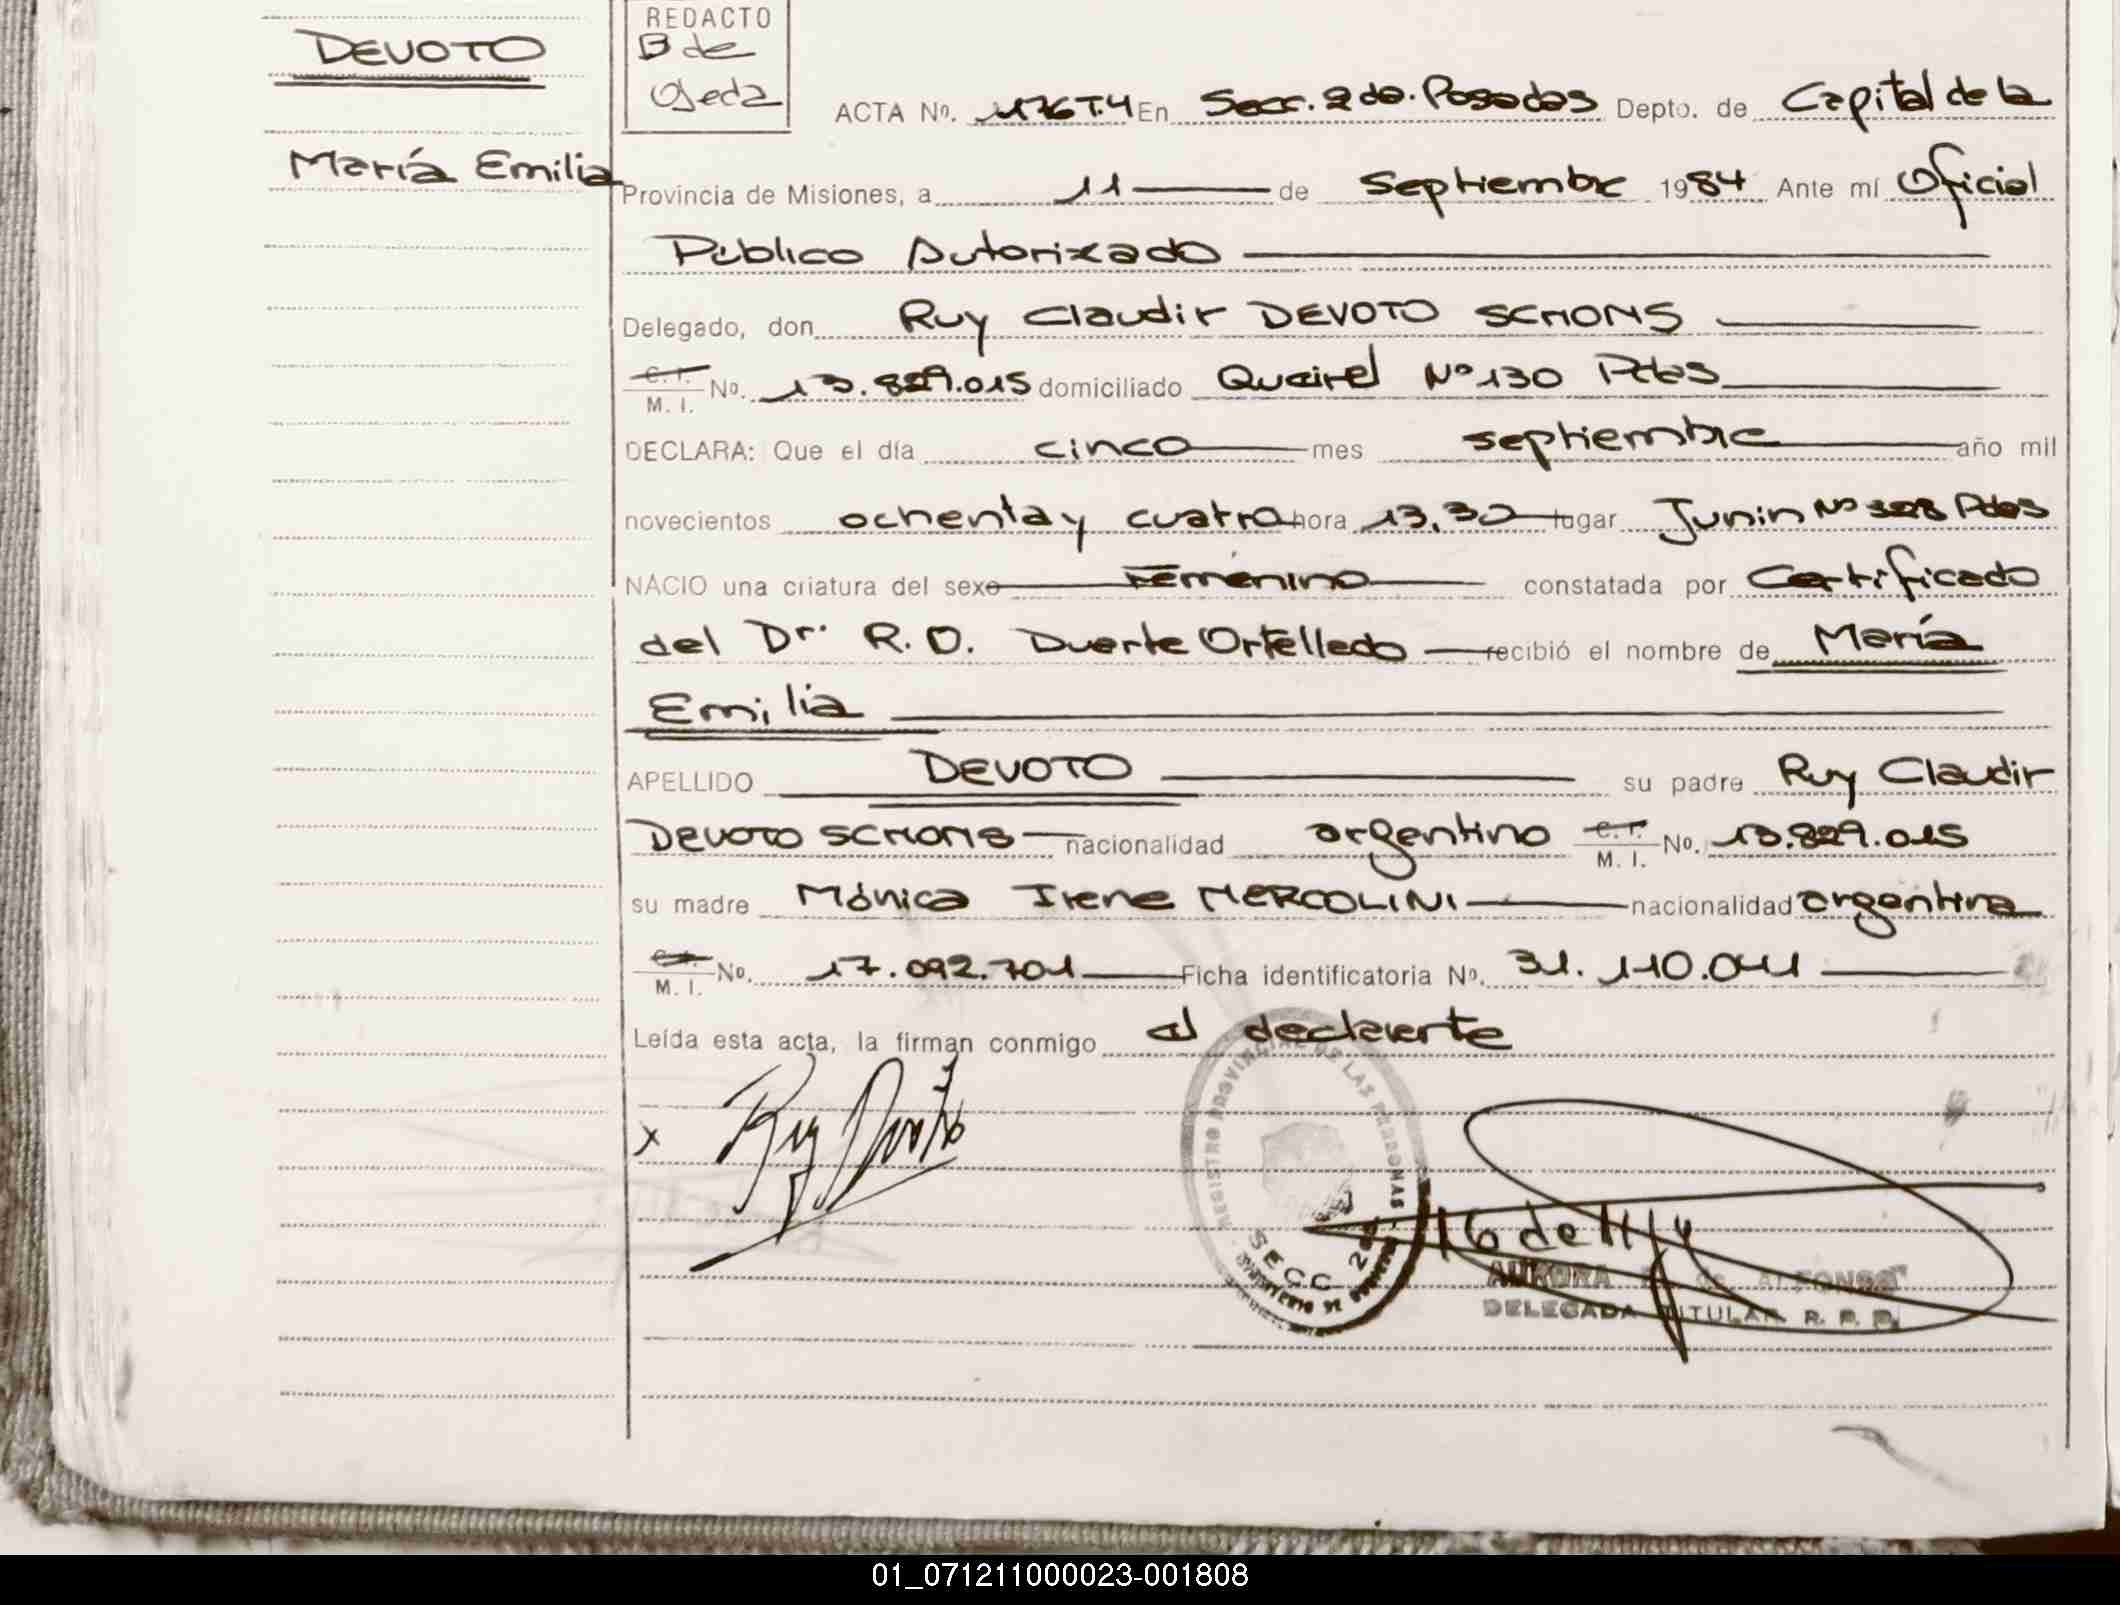 DEVOTO
María Emilia
REDACTO
B de
Ojeda
ACTA Nº. 176 T.4 En Secc. 2da. Posadas Depto. de Capital de la
Provincia de Misiones, a 11 de Septiembre 1984 Ante mí Oficial
Público Autorizado
Delegado, don Ruy Claudir DEVOTO SCHONS
C. I. M. I. Nº. 13.829.015 domiciliado Nº 130 Pdas
DECLARA: Que el día cinco mes septiembre año mil
novecientos ochenta y cuatro hora 13,30 lugar Junin Nº Pdas
NACIO una criatura del sexo Femenino constatada por Certificado
del Dr. R. O. Duarte Ortellado recibió el nombre de María
Emilia
APELLIDO DEVOTO su padre Ruy Claudir
DEVOTO SCHONS nacionalidad argentino C. I. M. I. Nº. 13.829.015
su madre Mónica Irene MERCOLINI nacionalidad argentina
C. I. M. I. Nº. 17.092.701 Ficha identificatoria Nº. 31.110.041
Leída esta acta, la firman conmigo el declarante
x Ruy Devoto
REGISTRO PROVINCIAL DE LAS PERSONAS
SECC. 2da
MINISTERIO DE GOBIERNO
AURORA
DELEGADA TITULAR R. P. P.
01_071211000023-001808